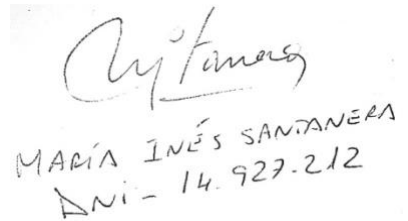 MARÍA INÉS SANTANERA
DNi - 14.927.212